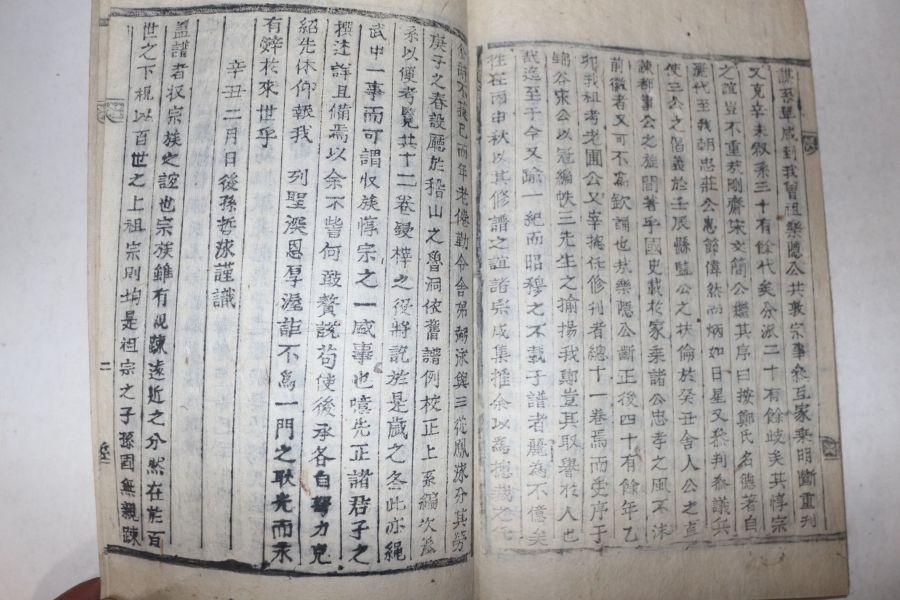 系單成到我曾祖樂隱公共敦宗事叅互家乘明斷重刊
又克辛未叙系三十有餘代矣分派二十有餘歧矣其惇宗
之誼豈不重哉剛齋宋文簡公繼其序曰按鄭氏名德著自
麗代至我朝忠莊公惠節偉然而炳如日星又叅判叅議兵
使三公之倡義於壬辰縣監公之扶倫於癸丑舍人公之直
諫都事公之旌閭著乎國史載於家乘諸公忠孝之風不沫
前徽者又可不為欽誦也哉樂隱公斷正後四十有餘年乙
卯我祖考老圃公又宰摠任修刊者總十一卷焉而受序于
錦谷宋公以冠編帙三先生之揄揚我鄭豈其取譽於人也
哉迄至于今又踰一紀而昭穆之不載于譜者麗為不億矣
往在丙申秋以其修譜之誼諸宗咸集推余以為摠裁之任
余辭不獲已而年老倦勤令舍弟弼泳與三從鳳泳分其勞
庚子之春設廳於稽山之魯洞依舊譜例校正上系編次派
系以便考覽共十二卷鋟梓之役將訖於是歲之冬此亦繩
武中一事而可謂収族惇宗之一盛事也噫先正諸君子之
撰述詳且備焉以余不肖何敢贅說苟使後承各自努力克
紹先休仰報我 列聖深恩厚澤詎不為一門之耿光而永
有辞於來世乎
辛丑二月日後孫哲泳謹識
盖譜者収宗族之誼也宗族雖有親踈遠近之分然在於百
世之下視以百世之上祖宗則均是祖宗之子孫固無親踈
二